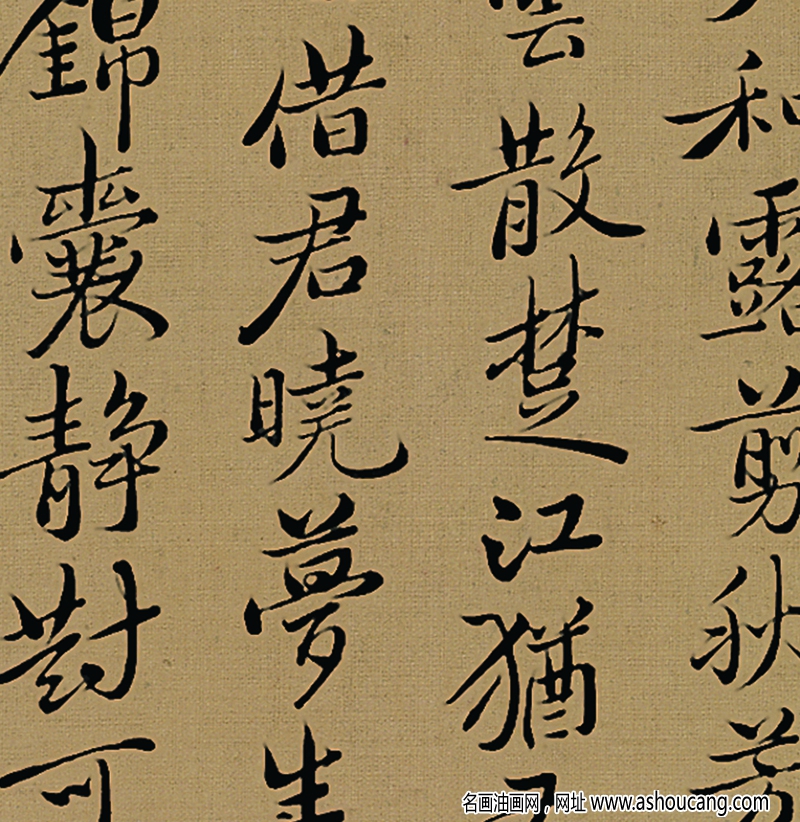 和露剪秋芳
雲散楚江猶
借君曉夢生
錦囊静對可
名画油画网，网址 www.ashoucang.com